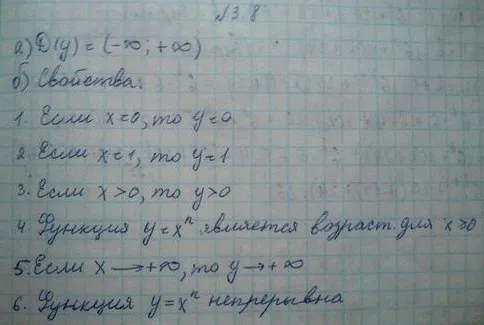 №3.8
а) D(y) = (-∞; +∞)
б) Свойства:
1. Если x=0, то y=0
2. Если x=1, то y=1
3. Если x>0, то y>0
4. Функция y=xⁿ является возраст. для x≥0
5. Если x→+∞, то y→+∞
6. Функция y=xⁿ непрерывна